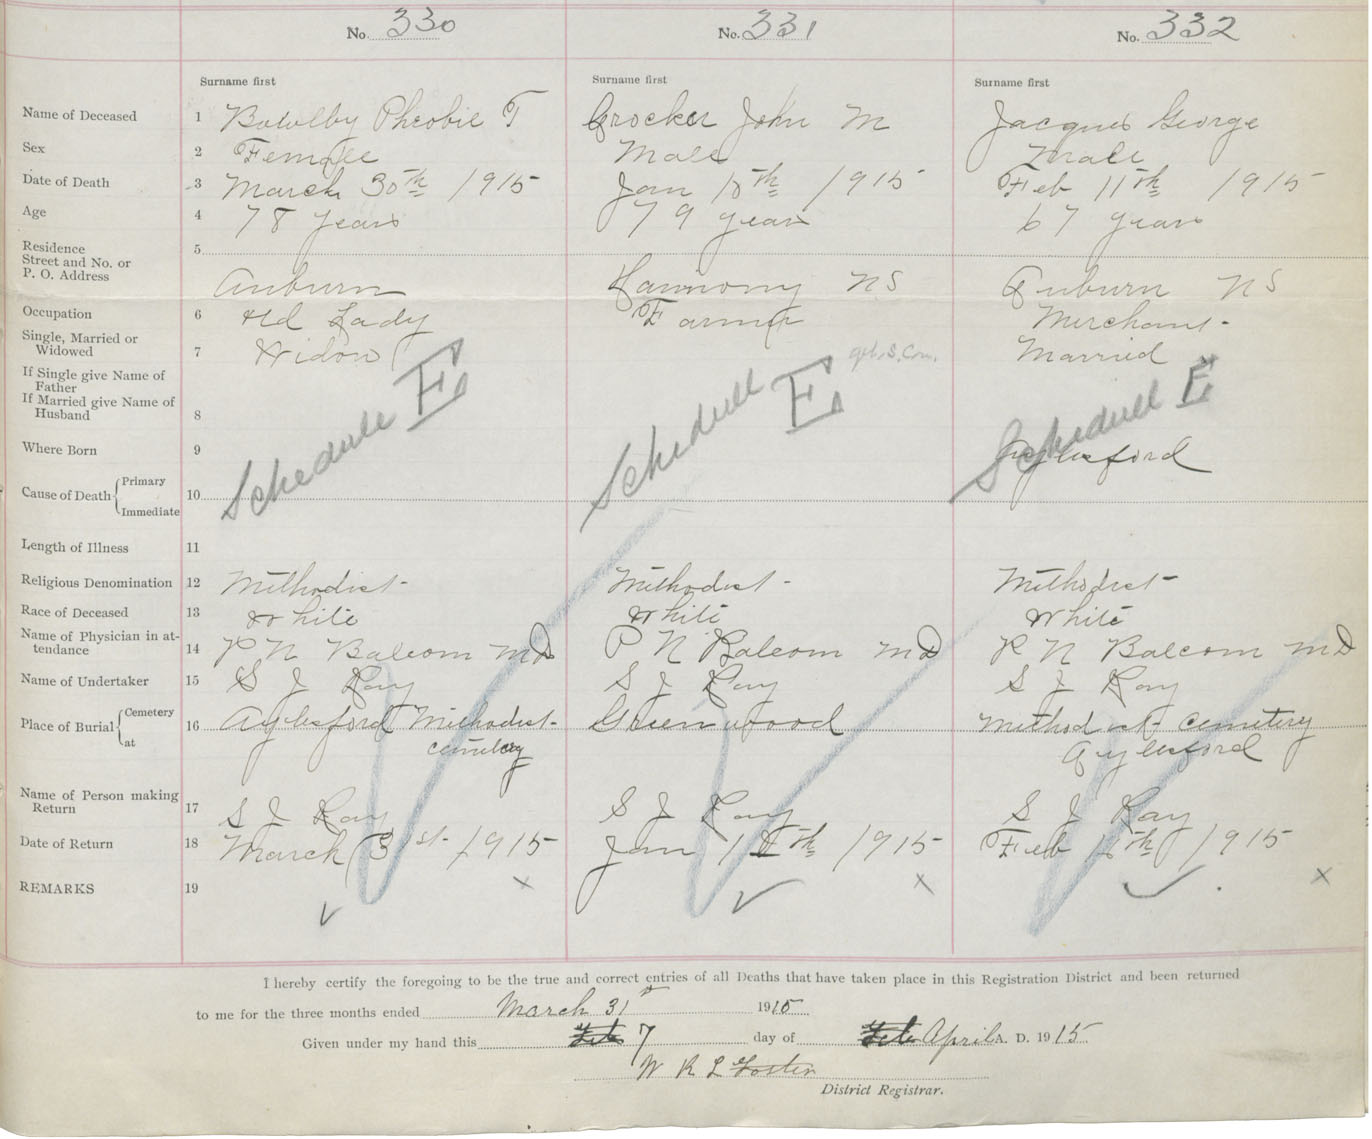 No. 330 No. 331 No. 332
Surname first Surname first Surname first
Name of Deceased 1 Bowlby Pheobie T Crocker John M Jacques George
Sex 2 Female Male Male
Date of Death 3 March 30th 1915 Jan 15th 1915 Feb 11th 1915
Age 4 78 years 79 years 67 years
Residence 5
Street and No. or
P. O. Address Auburn Harmony NS Auburn NS
Occupation 6 Old Lady Farmer Merchant
Single, Married or
Widowed 7 Widow Married
If Single give Name of
Father
If Married give Name of
Husband 8
Schedule E Schedule E Schedule E
Where Born 9 Aylesford
Cause of Death Primary 10
Immediate
Length of Illness 11
Religious Denomination 12 Methodist Methodist Methodist
Race of Deceased 13 White White White
Name of Physician in at-
tendance 14 P N Balcom MD P N Balcom MD P N Balcom MD
Name of Undertaker 15 S J Ray S J Ray S J Ray
Place of Burial Cemetery 16 Aylesford Methodist Greenwood Methodist Cemetery
at cemetery Aylesford
Name of Person making
Return 17 S J Ray S J Ray S J Ray
Date of Return 18 March 31st 1915 Jan 1915 Feb 1915
REMARKS 19
I hereby certify the foregoing to be the true and correct entries of all Deaths that have taken place in this Registration District and been returned
to me for the three months ended March 31st 1915
Given under my hand this 7 day of April A. D. 1915
W R L Foster
District Registrar.